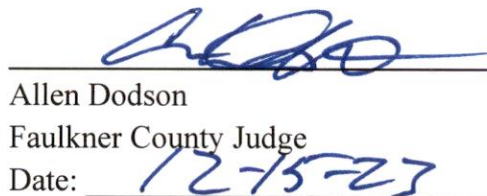 Allen Dodson
Faulkner County Judge
Date: 12-15-23